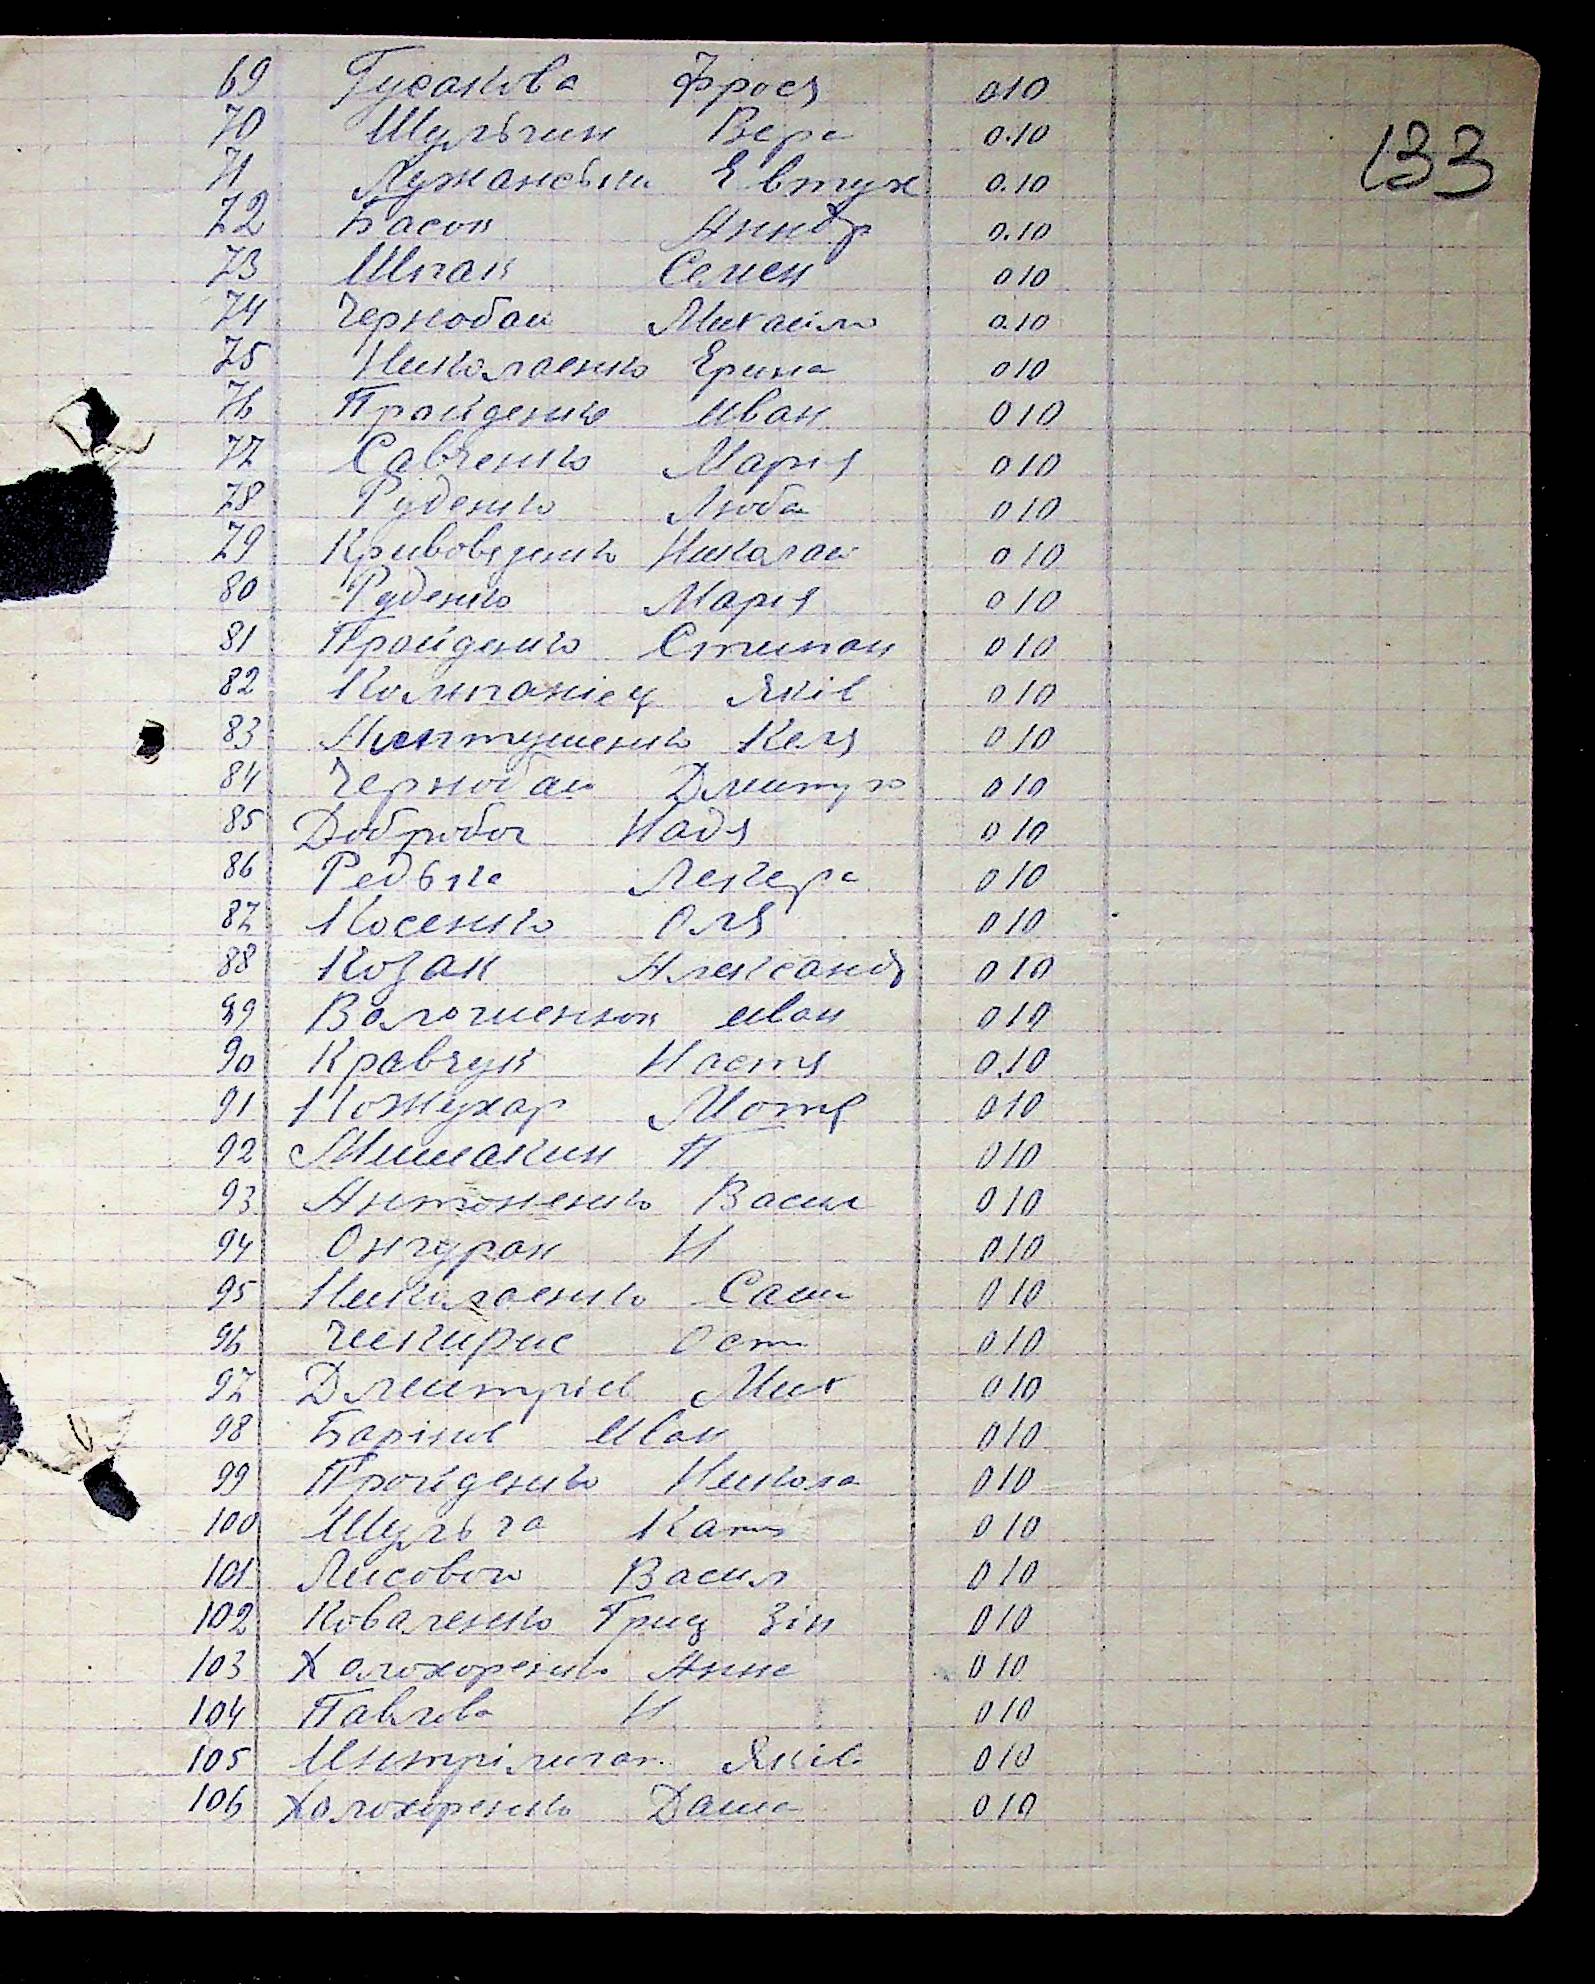 133
69 Гусакова Фрося 010
70 Шульгин Вера 0.10
71 Лужанськи Евтух 0.10
72 Басок 0.10
73 Шпак Семен 010
74 Чернобаи Михайло 0.10
75 Николаенко Ерина 010
76 Пройденко Иван 010
77 Савченко Мария 010
78 Руденко Люба 010
79 Николаи 010
80 Руденко Мария 010
81 Пройденко Стипан 010
82 Компаніец Яків 010
83 010
84 Чернобаи Дмитро 010
85 Надя 010
86 Редька 010
87 Косенко Оля 010
88 Козак Александ 010
89 Иван 010
90 Кравчук Настя 0.10
91 Кожухар Мотя 010
92 Мишакин П 010
93 Антоненко Васил 010
94 Онгуран Н 010
95 Николаенко Саша 010
96 Чикирис Ост 010
97 Дмитріев Мих 010
98 Иван 010
99 Пройденко Никола 010
100 Шульга Катя 010
101 Лисовои Васил 010
102 Коваленко Гриц Зін 010
103 Холохоренко Анна 010
104 Павлова Н 010
105 Яків 010
106 Холохоренко Даша 010